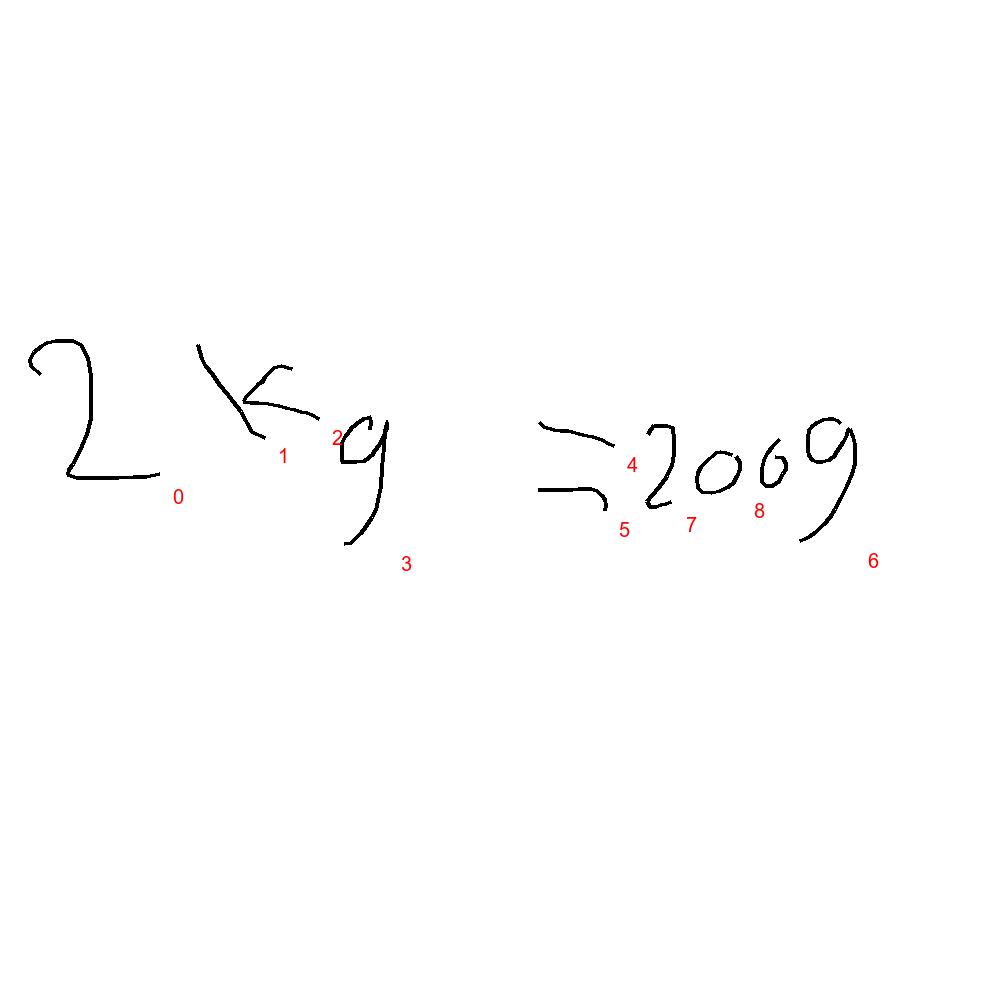 2 kg = 200g
0 1 2 3 4 5 7 8 6